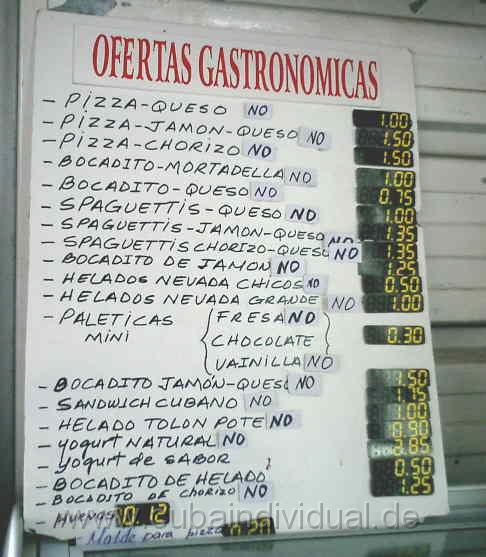 OFERTAS GASTRONOMICAS
- PIZZA-QUESO NO 1.00
- PIZZA-JAMON-QUESO NO 1.50
- PIZZA-CHORIZO NO 1.50
- BOCADITO-MORTADELLA NO 1.00
- BOCADITO-QUESO NO 0.75
- SPAGUETTIS-QUESO NO 1.00
- SPAGUETTIS-JAMON-QUESO NO 1.35
- SPAGUETTIS CHORIZO-QUESO NO 1.35
- BOCADITO DE JAMON NO 1.25
- HELADOS NEVADA CHICOS NO 0.50
- HELADOS NEVADA GRANDE NO 1.00
- PALETICAS FRESA NO
MINI CHOCOLATE 0.30
VAINILLA NO
- BOCADITO JAMÓN-QUESO NO 1.50
- SANDWICH CUBANO NO 1.75
- HELADO TOLON POTE NO 1.00
- yogurt NATURAL NO 0.90
- yogurt de SABOR
- BOCADITO DE HELADO 0.50
- BOCADITO DE CHORIZO NO 1.25
- HUEVOS 0.12
- Molde para pizza 0.20
www.cubaindividual.de